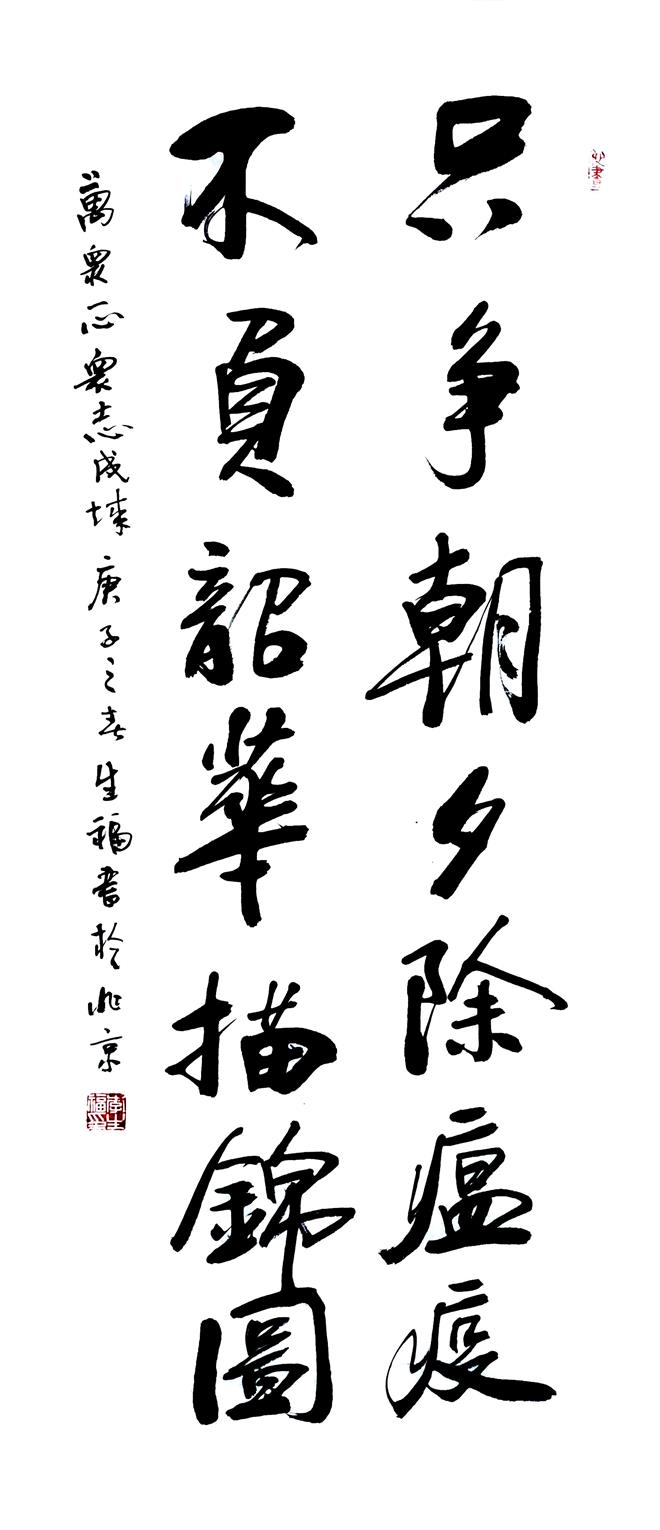 只争朝夕除瘟疫
不負韶華描錦圖
萬衆一心衆志成城 庚子之春生福書於北京
李生福印